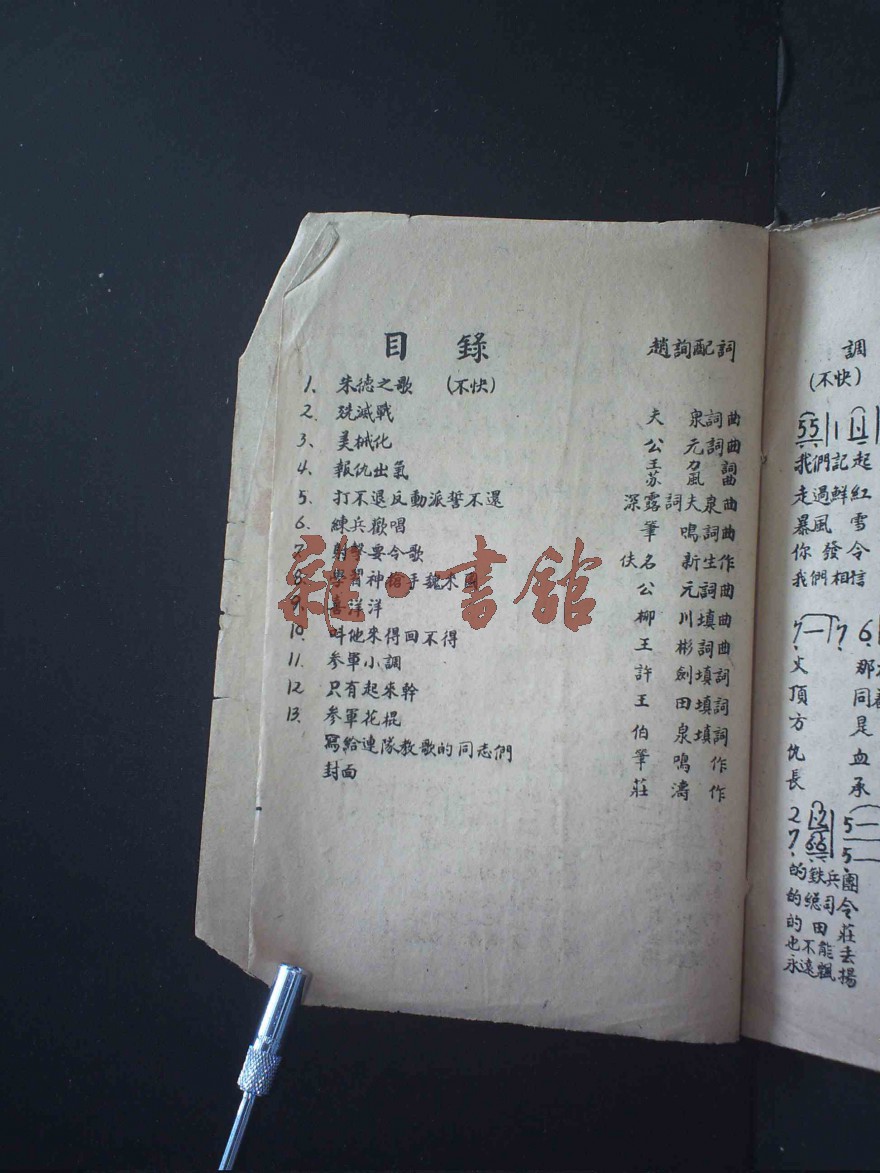 目 錄
趙詢配詞
1、 朱德之歌 (不快)
2、 殲滅戰 夫 泉詞曲
3、 美械化 公 元詞曲
4、 報仇出氣 王 力 詞
苏 風 曲
5、 打不退反動派誓不還 深露詞夫泉曲
6、 練兵歡唱 筆 鳴詞曲
7、 射擊要令歌 佚名 新生作
8、 學習神槍手魏來國 公 元詞曲
9、 喜洋洋 柳 川填曲
10、 叫他來得回不得 王 彬詞曲
11、 参軍小調 許 劍填詞
12 只有起來幹 王 田填詞
13、 参軍花棍 伯 泉填詞
寫給連隊教歌的同志們 筆 鳴 作
封面 莊 濤 作
雜·書館
調
(不快)
55 1
我們記起
走過鮮紅
暴風 雪
你發令
我們相信
7 — 7 6
丈 那
頂 同
方 是
仇 血
長 承
2 5 —
7 5 —
的鉄兵團
的總司令
的 田 莊
也不能去
永遠飄揚